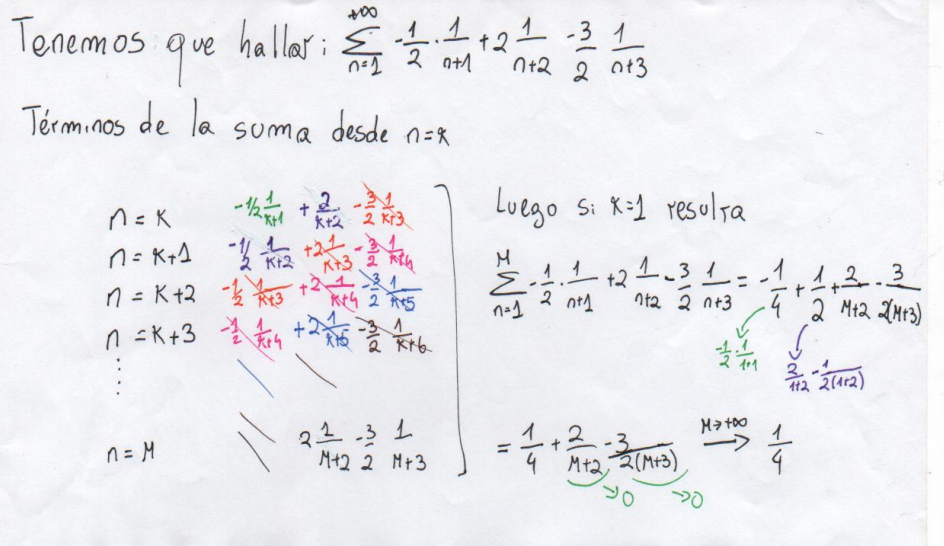 Tenemos que hallar: ∑_{n=1}^{+∞} -1/2 · 1/(n+1) + 2 1/(n+2) -3/2 1/(n+3)
Términos de la suma desde n=k
n=k -1/2 1/(k+1) + 2/(k+2) -3/2 1/(k+3)
n=k+1 -1/2 1/(k+2) +2 1/(k+3) -3/2 1/(k+4)
n=k+2 -1/2 1/(k+3) +2 1/(k+4) -3/2 1/(k+5)
n=k+3 -1/2 1/(k+4) +2 1/(k+5) -3/2 1/(k+6)
⋮
n=M 2 1/(M+2) -3/2 1/(M+3)
Luego si k=1 resulta
∑_{n=1}^{M} -1/2 · 1/(n+1) + 2 1/(n+2) - 3/2 1/(n+3) = -1/4 + 1/2 + 2/(M+2) - 3/(2(M+3))
-1/2 · 1/(1+1) 2/(1+2) - 1/(2(1+2))
= 1/4 + 2/(M+2) - 3/(2(M+3)) M→+∞ ⟶ 1/4
→0 →0